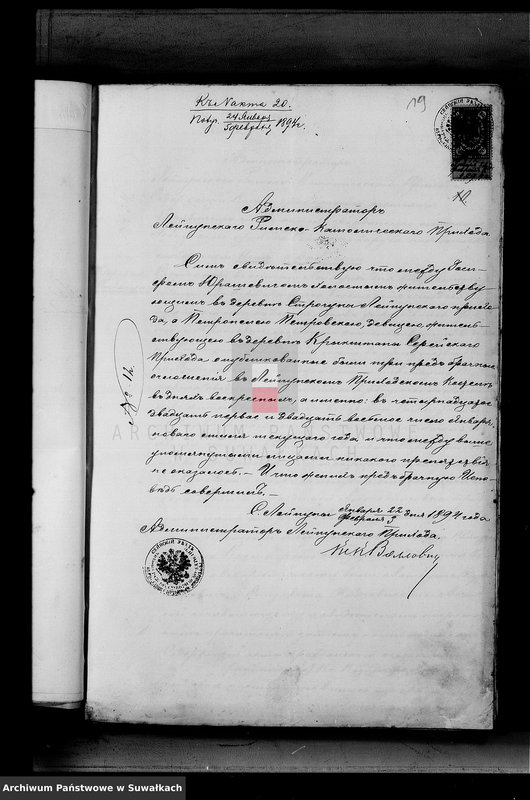 Къ № акта 20.
19
Повр. 24 Января
5 Февраля 1894 г.
Администраторъ
Лейпунскаго Римско-Католическаго Прихода
Симъ свидѣтельствую что между
Юрашевичемъ холостымъ жительству-
ющимъ въ деревнѣ Лейпунскаго прихо-
да, а Петронелею Петровскою, девицею житель-
ствующею въ деревнѣ Крикштаны Серейскаго
Прихода опубликованные были три предъ брачные
оглошенія въ Лейпунскомъ Приходскомъ Костелѣ
въ дняхъ воскресныхъ, а именно: въ четырнадцатое
двадцать первое и двадцать восьмое число Января,
новаго стиля текущаго года и что между выше
упомянутыми лицами никакого препятствія
не оказалось. — И что женихъ предъ брачную Испо-
вѣдь совершилъ. —
№ 12.
С. Лейпуны Января 22
Февраля 3 дня 1894 года
Администраторъ Лейпунскаго Прихода.
ARCHIWUM PAŃSTWOWE
Archiwum Państwowe w Suwałkach